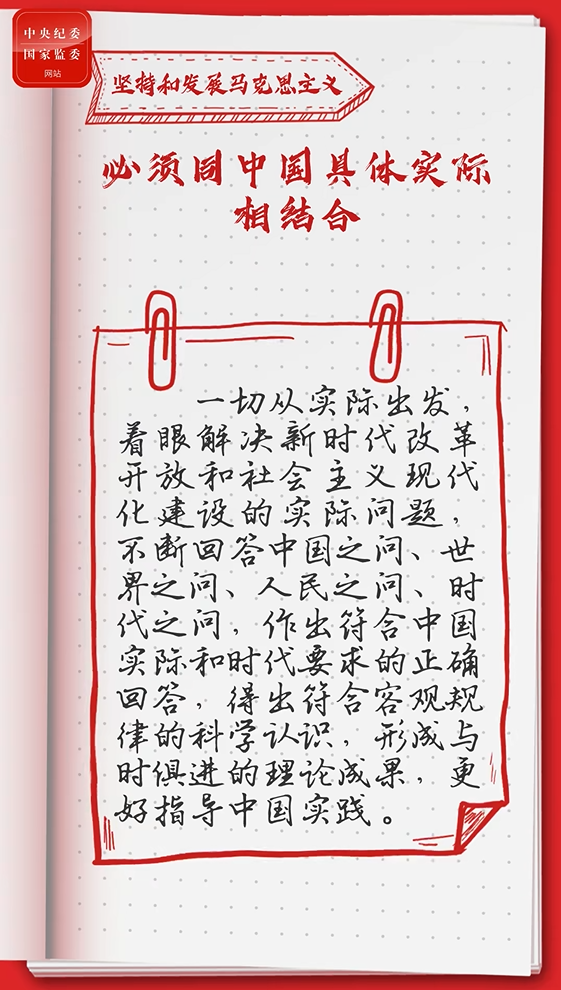 中央纪委
国家监委
网站
坚持和发展马克思主义
必须同中国具体实际
相结合
一切从实际出发，
着眼解决新时代改革
开放和社会主义现代
化建设的实际问题，
不断回答中国之问、世
界之问、人民之问、时
代之问，作出符合中国
实际和时代要求的正确
回答，得出符合客观规
律的科学认识，形成与
时俱进的理论成果，更
好指导中国实践。